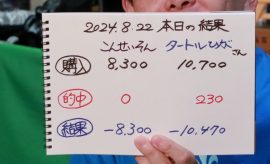 2024.8.22 本日の結果
こんせいそん タートルひがさん
購入 8,300 10,700
的中 0 230
結果 -8,300 -10,470